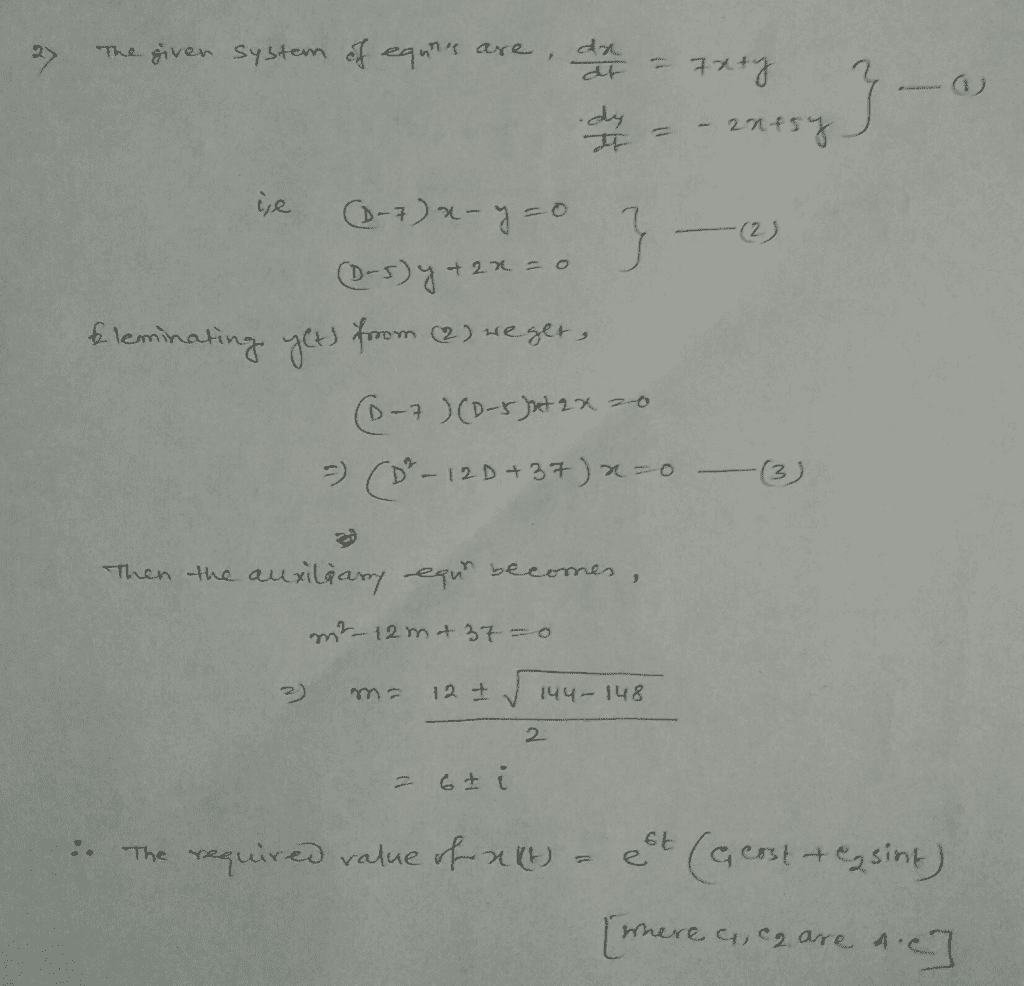 2> The given system of equn's are, dx/dt = 7x+y
dy/dt = - 2x+5y } — (1)
i,e (D-7)x - y = 0
(D-5)y + 2x = 0 } — (2)
Eleminating y(t) from (2) we get,
(D-7)(D-5)x+2x = 0
=> (D² - 12D + 37)x = 0 — (3)
Then the auxiliary equn becomes,
m² - 12m + 37 = 0
=> m = 12 ± √144 - 148 / 2
= 6 ± i
∴ The required value of x(t) = e^6t (c₁ cost + c₂ sint)
[where c₁, c₂ are A.C]